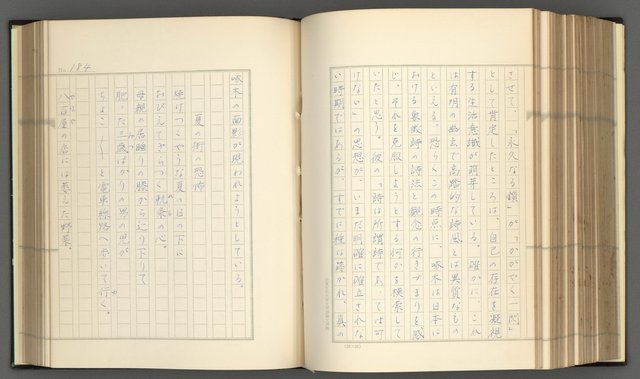 させて、「永久なる鎖」が「かがやく一閃」
として肯定したところは、自己の存在を凝視
する生活意識が萌芽している。確かに、これ
は有明の幽玄で高踏的な詩風とは異質なもの
といえる。恐らくこの時点に、啄木は日本に
おける象徴詩の詩法と観念の行きづまりを感
じ、それを克服しようとする何かを模索して
いたと思う。彼の「詩は所謂詩であっては可
けない」の思想が、いまだ明確に確立されな
い時期ではあるが、すでに種は蒔かれ、真の
No. 184
啄木の面影が現われようとしている。
夏の街の恐怖
焼けつくやうな夏の日の下に
おびえてぎらつく軌条の心。
母親の居睡りの膝から辷り下りて
肥った三歳ばかりの男の児が
ちょこ〳〵と電車線路へ歩いて行く。
八百屋の店には萎えた野菜。